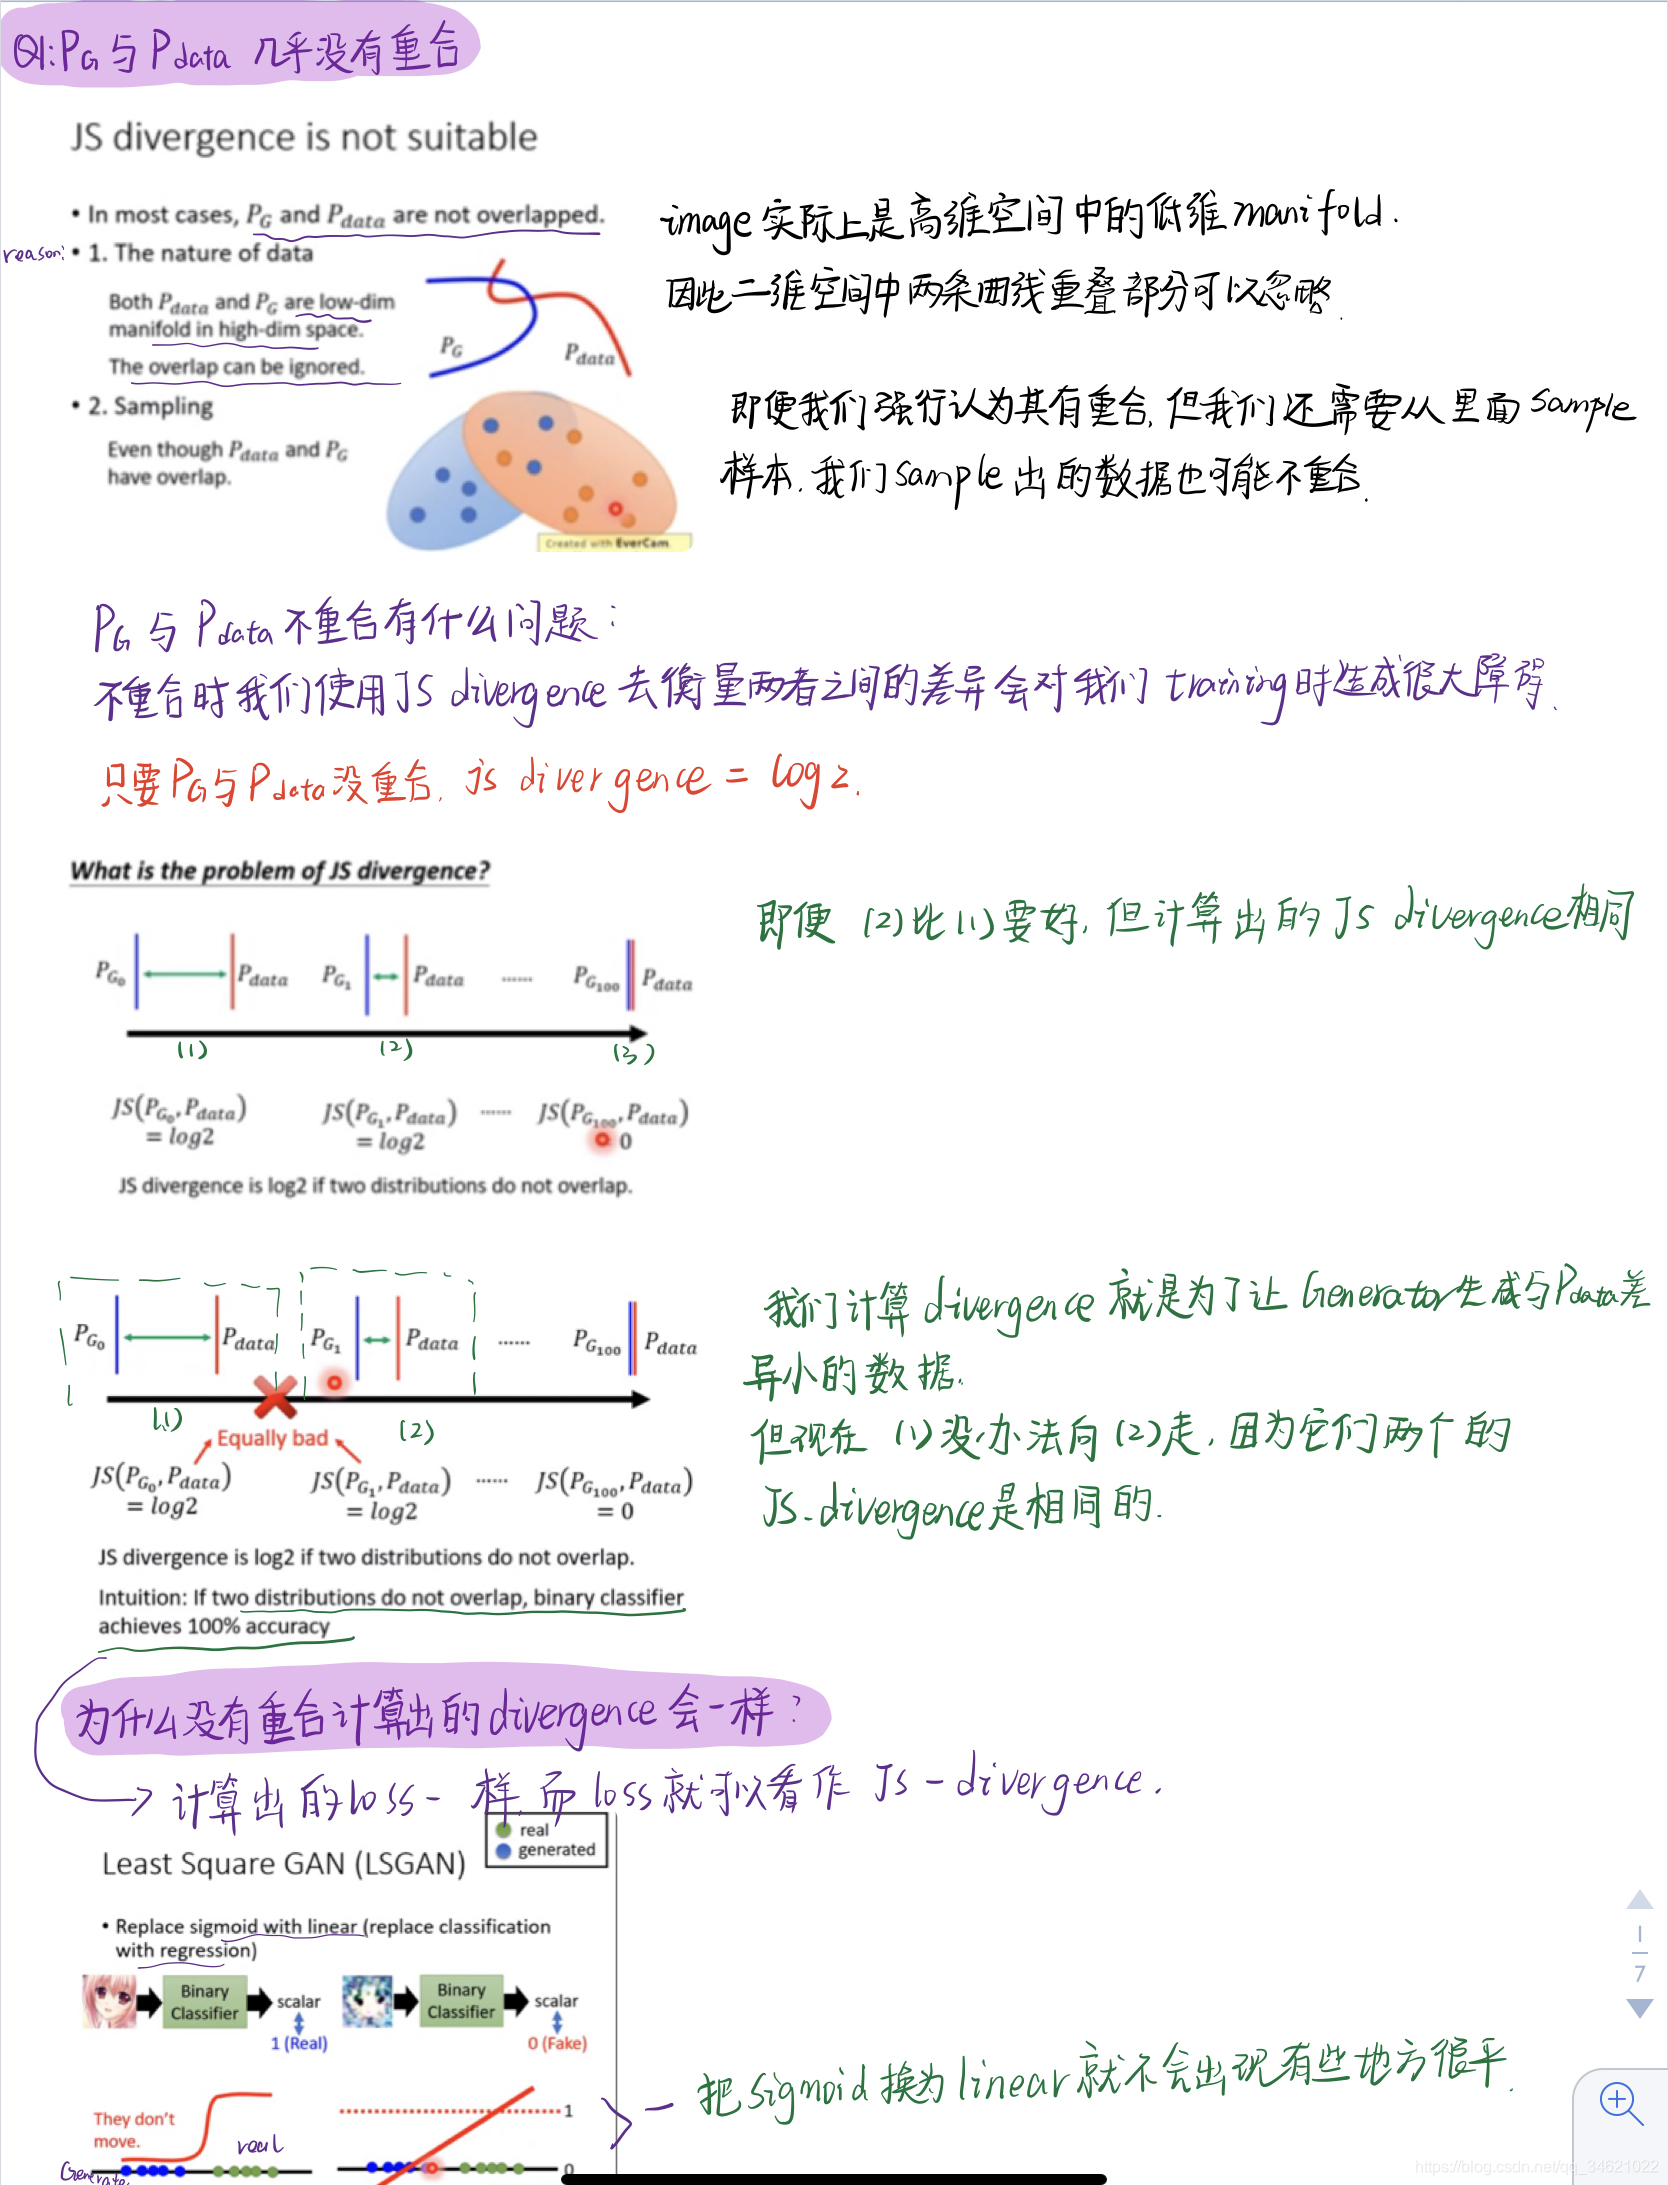 Q1: PG 与 Pdata 几乎没有重合
JS divergence is not suitable
• In most cases, PG and Pdata are not overlapped.
reason:
• 1. The nature of data
Both Pdata and PG are low-dim
manifold in high-dim space.
The overlap can be ignored.
PG
Pdata
image 实际上是高维空间中的低维 manifold.
因此二维空间中两条曲线重叠部分可以忽略.
• 2. Sampling
Even though Pdata and PG
have overlap.
Created with EverCam.
即便我们强行认为其有重合, 但我们还需要从里面 sample
样本. 我们 sample 出的数据也可能不重合.
PG 与 Pdata 不重合有什么问题:
不重合时我们使用 JS divergence 去衡量两者之间的差异会对我们 training 时造成很大障碍.
只要 PG 与 Pdata 没重合, js divergence = log 2.
What is the problem of JS divergence?
PG0 Pdata PG1 Pdata ...... PG100 Pdata
(1) (2) (3)
JS(PG0, Pdata) JS(PG1, Pdata) ...... JS(PG100, Pdata)
= log2 = log2 0
JS divergence is log2 if two distributions do not overlap.
即便 (2) 比 (1) 要好, 但计算出的 JS divergence 相同
PG0 Pdata PG1 Pdata ...... PG100 Pdata
(1) (2)
Equally bad
JS(PG0, Pdata) JS(PG1, Pdata) ...... JS(PG100, Pdata)
= log2 = log2 = 0
JS divergence is log2 if two distributions do not overlap.
Intuition: If two distributions do not overlap, binary classifier
achieves 100% accuracy
我们计算 divergence 就是为了让 Generator 生成与 Pdata 差
异小的数据.
但现在 (1) 没办法向 (2) 走, 因为它们两个的
JS-divergence 是相同的.
为什么没有重合计算出的 divergence 会一样?
→ 计算出的 loss 一样, 而 loss 就可以看作 JS-divergence.
real
generated
Least Square GAN (LSGAN)
• Replace sigmoid with linear (replace classification
with regression)
Binary
Classifier
scalar
1 (Real)
Binary
Classifier
scalar
0 (Fake)
They don't
move.
real
Generate
1
0
把 sigmoid 换为 linear 就不会出现有些地方很平.
1
7
https://blog.csdn.net/qq_34621022